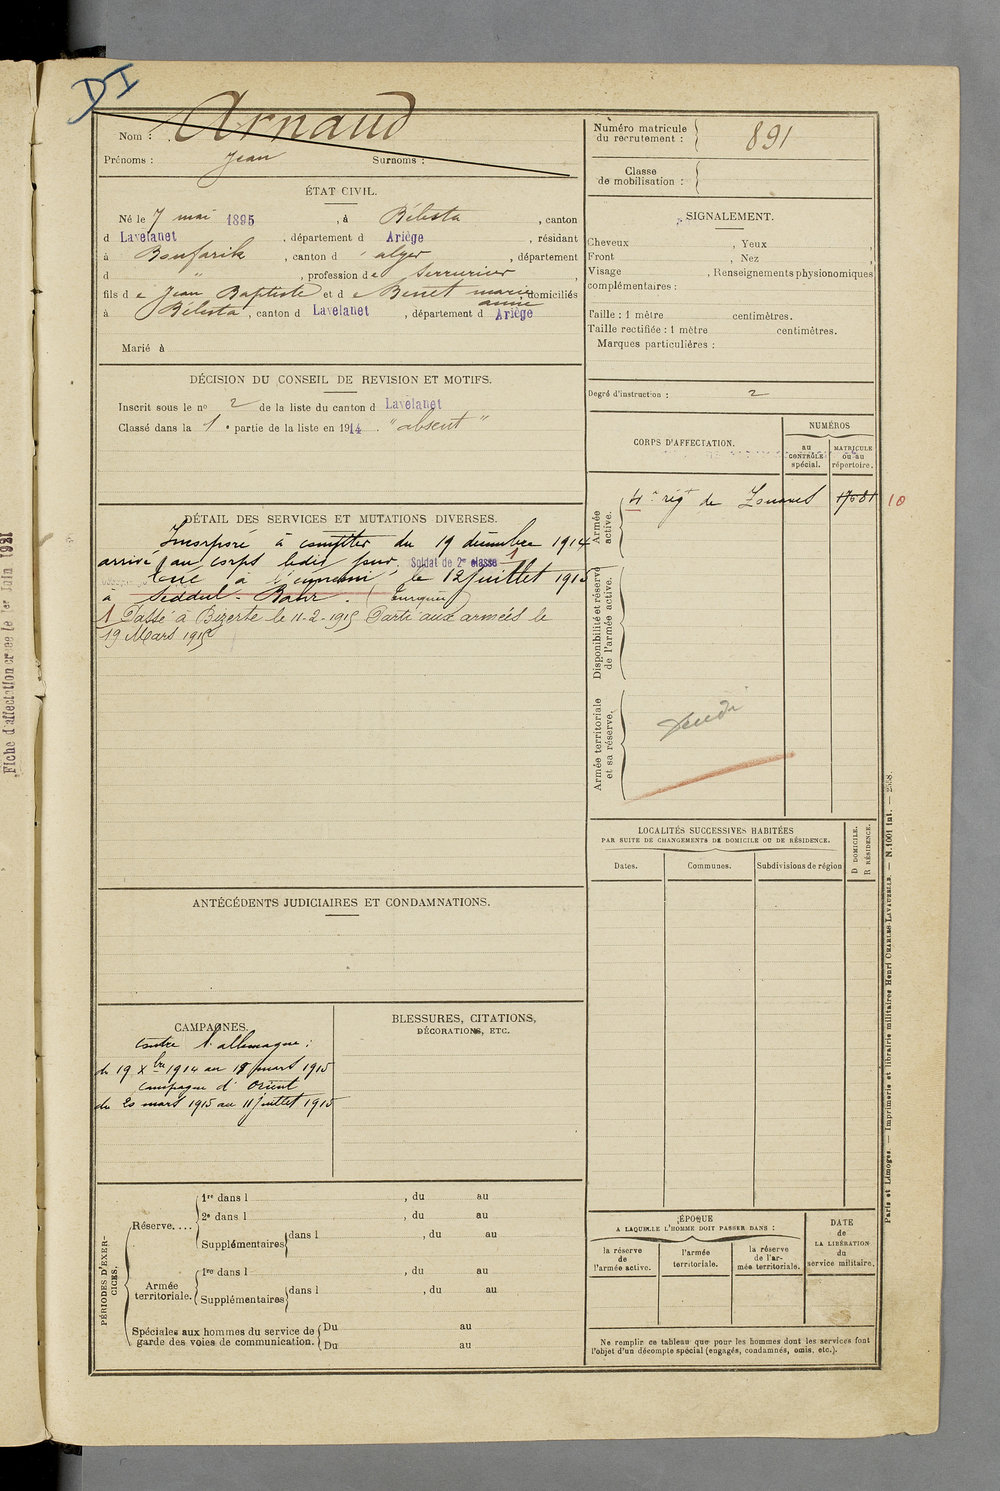 DI
Nom : Arnaud
Prénoms : Jean Surnoms :
ÉTAT CIVIL.
Né le 7 mai 1895, à Bélesta, canton
d Lavelanet, département d Ariège, résidant
à Boufarik, canton d'alger, département
d " , profession de Serrurier,
fils de Jean Baptiste et de Benet marie domiciliés
anne
à Bélesta, canton d Lavelanet, département d Ariège
Marié à
DÉCISION DU CONSEIL DE REVISION ET MOTIFS.
Inscrit sous le nº 2 de la liste du canton d Lavelanet
Classé dans la 1e partie de la liste en 1914. "absent"
DÉTAIL DES SERVICES ET MUTATIONS DIVERSES.
Incorporé à compter du 19 décembre 1914
arrivé au corps ledit jour. Soldat de 2e classe 1
Tué à l'ennemi, le 12 juillet 1915
à Seddul-Bahr. (Turquie)
1 Passé à Bizerte le 11-2-1915 Parti aux armées le
19 Mars 1915
ANTÉCÉDENTS JUDICIAIRES ET CONDAMNATIONS.
CAMPAGNES.
Contre l'allemagne :
du 19 Xbre 1914 au 19 mars 1915
campagne d'Orient
du 20 mars 1915 au 11 juillet 1915
BLESSURES, CITATIONS,
DÉCORATIONS, ETC.
PÉRIODES D'EXERCICES.
Réserve....
1re dans l , du au
2e dans l , du au
Supplémentaires dans l , du au
Armée territoriale.
1re dans l , du au
Supplémentaires dans l , du au
Spéciales aux hommes du service de garde des voies de communication.
Du au
Du au
Numéro matricule
du recrutement : 891
Classe
de mobilisation :
SIGNALEMENT.
Cheveux , Yeux ,
Front , Nez
Visage , Renseignements physionomiques
complémentaires :
Taille : 1 mètre centimètres.
Taille rectifiée : 1 mètre centimètres.
Marques particulières :
Degré d'instruction : 2
CORPS D'AFFECTATION.
NUMÉROS
au
CONTRÔLE
spécial.
MATRICULE
ou au
répertoire.
Armée
active.
4e régt de Zouaves 10
Disponibilité et réserve
de l'armée active.
Armée territoriale
et sa réserve.
LOCALITÉS SUCCESSIVES HABITÉES
PAR SUITE DE CHANGEMENTS DE DOMICILE OU DE RÉSIDENCE.
Dates.
Communes.
Subdivisions de région
D DOMICILE.
R RÉSIDENCE.
ÉPOQUE
A LAQUELLE L'HOMME DOIT PASSER DANS :
la réserve
de
l'armée active.
l'armée
territoriale.
la réserve
de l'ar-
mée territoriale.
DATE
de
LA LIBÉRATION
du
service militaire.
Ne remplir ce tableau que pour les hommes dont les services font
l'objet d'un décompte spécial (engagés, condamnés, omis, etc.).
Paris et Limoges. — Imprimerie et librairie militaires Henri CHARLES-LAVAUZELLE. — N. 1001 int. —
Fiche d'affectation créée le 1er Juin 1921